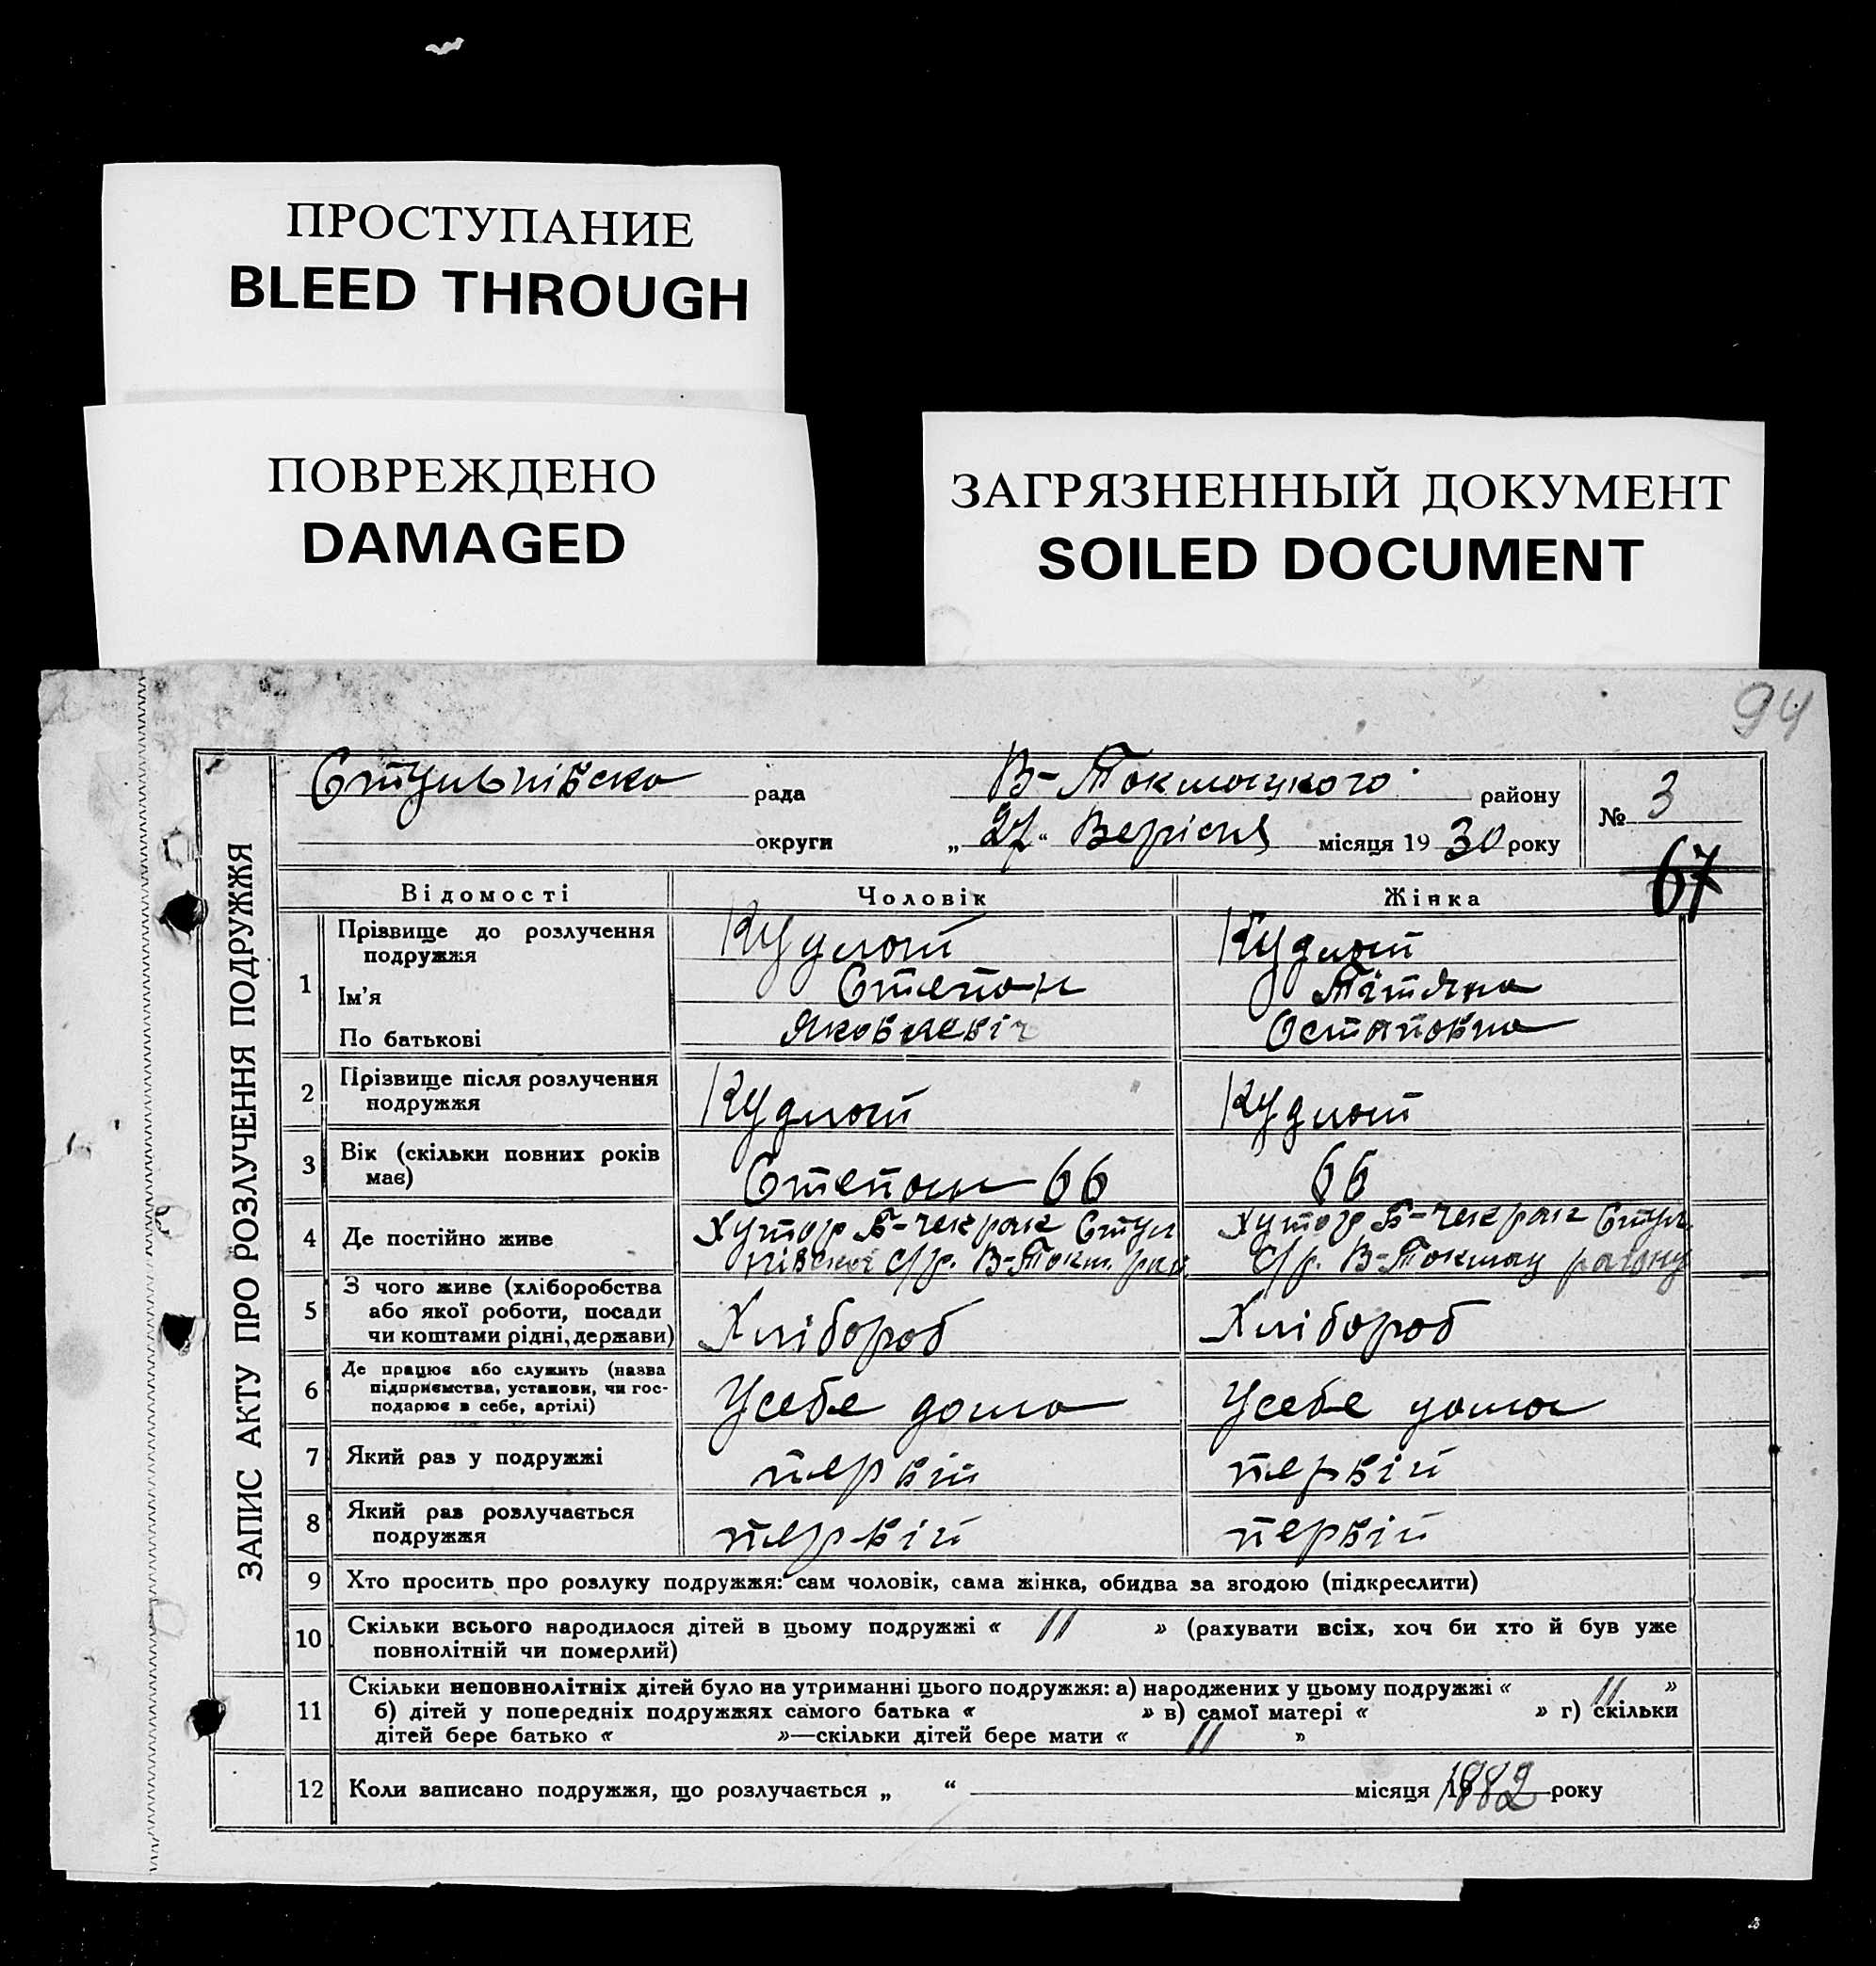 ПРОСТУПАНИЕ
BLEED THROUGH
ПОВРЕЖДЕНО
DAMAGED
ЗАГРЯЗНЕННЫЙ ДОКУМЕНТ
SOILED DOCUMENT
94
ЗАПИС АКТУ ПРО РОЗЛУЧЕННЯ ПОДРУЖЖЯ
Стульнівска рада В-Токмацкого району № 3
округи „27“ Верісня місяця 1930 року
67
Відомості Чоловік Жінка
1 Прізвище до розлучення подружжя Кудлот Кудлот
Ім'я Степан Татяна
По батькові Яковлевіч Остаповна
2 Прізвище після розлучення подружжя Кудлот Кудлот
3 Вік (скільки повних років має) Степан 66 66
4 Де постійно живе Хутор Б-Чекрак Стул Хутор Б-Чекрак Стул
нівскої с/р. В-Токм. рай с/р. В-Токмац району
5 З чого живе (хліборобства
або якої роботи, посади
чи коштами рідні, держави) Хлібороб Хлібороб
6 Де працює або служить (назва
підприємства, установи, чи гос-
подарює в себе, артілі) Усебе дома Усебе дома
7 Який раз у подружжі первій первій
8 Який раз розлучається
подружжя первій первій
9 Хто просить про розлуку подружжя: сам чоловік, сама жінка, обидва за згодою (підкреслити)
10 Скільки всього народилося дітей в цьому подружжі « // » (рахувати всіх, хоч би хто й був уже
повнолітній чи померлий)
11 Скільки неповнолітніх дітей було на утриманні цього подружжя: а) народжених у цьому подружжі « // »
б) дітей у попередніх подружжях самого батька « » в) самої матері « » г) скільки
дітей бере батько « »—скільки дітей бере мати « // »
12 Коли записано подружжя, що розлучається „ “ місяця 1882 року